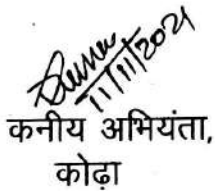 11/11/2021
कनीय अभियंता,
कोढ़ा